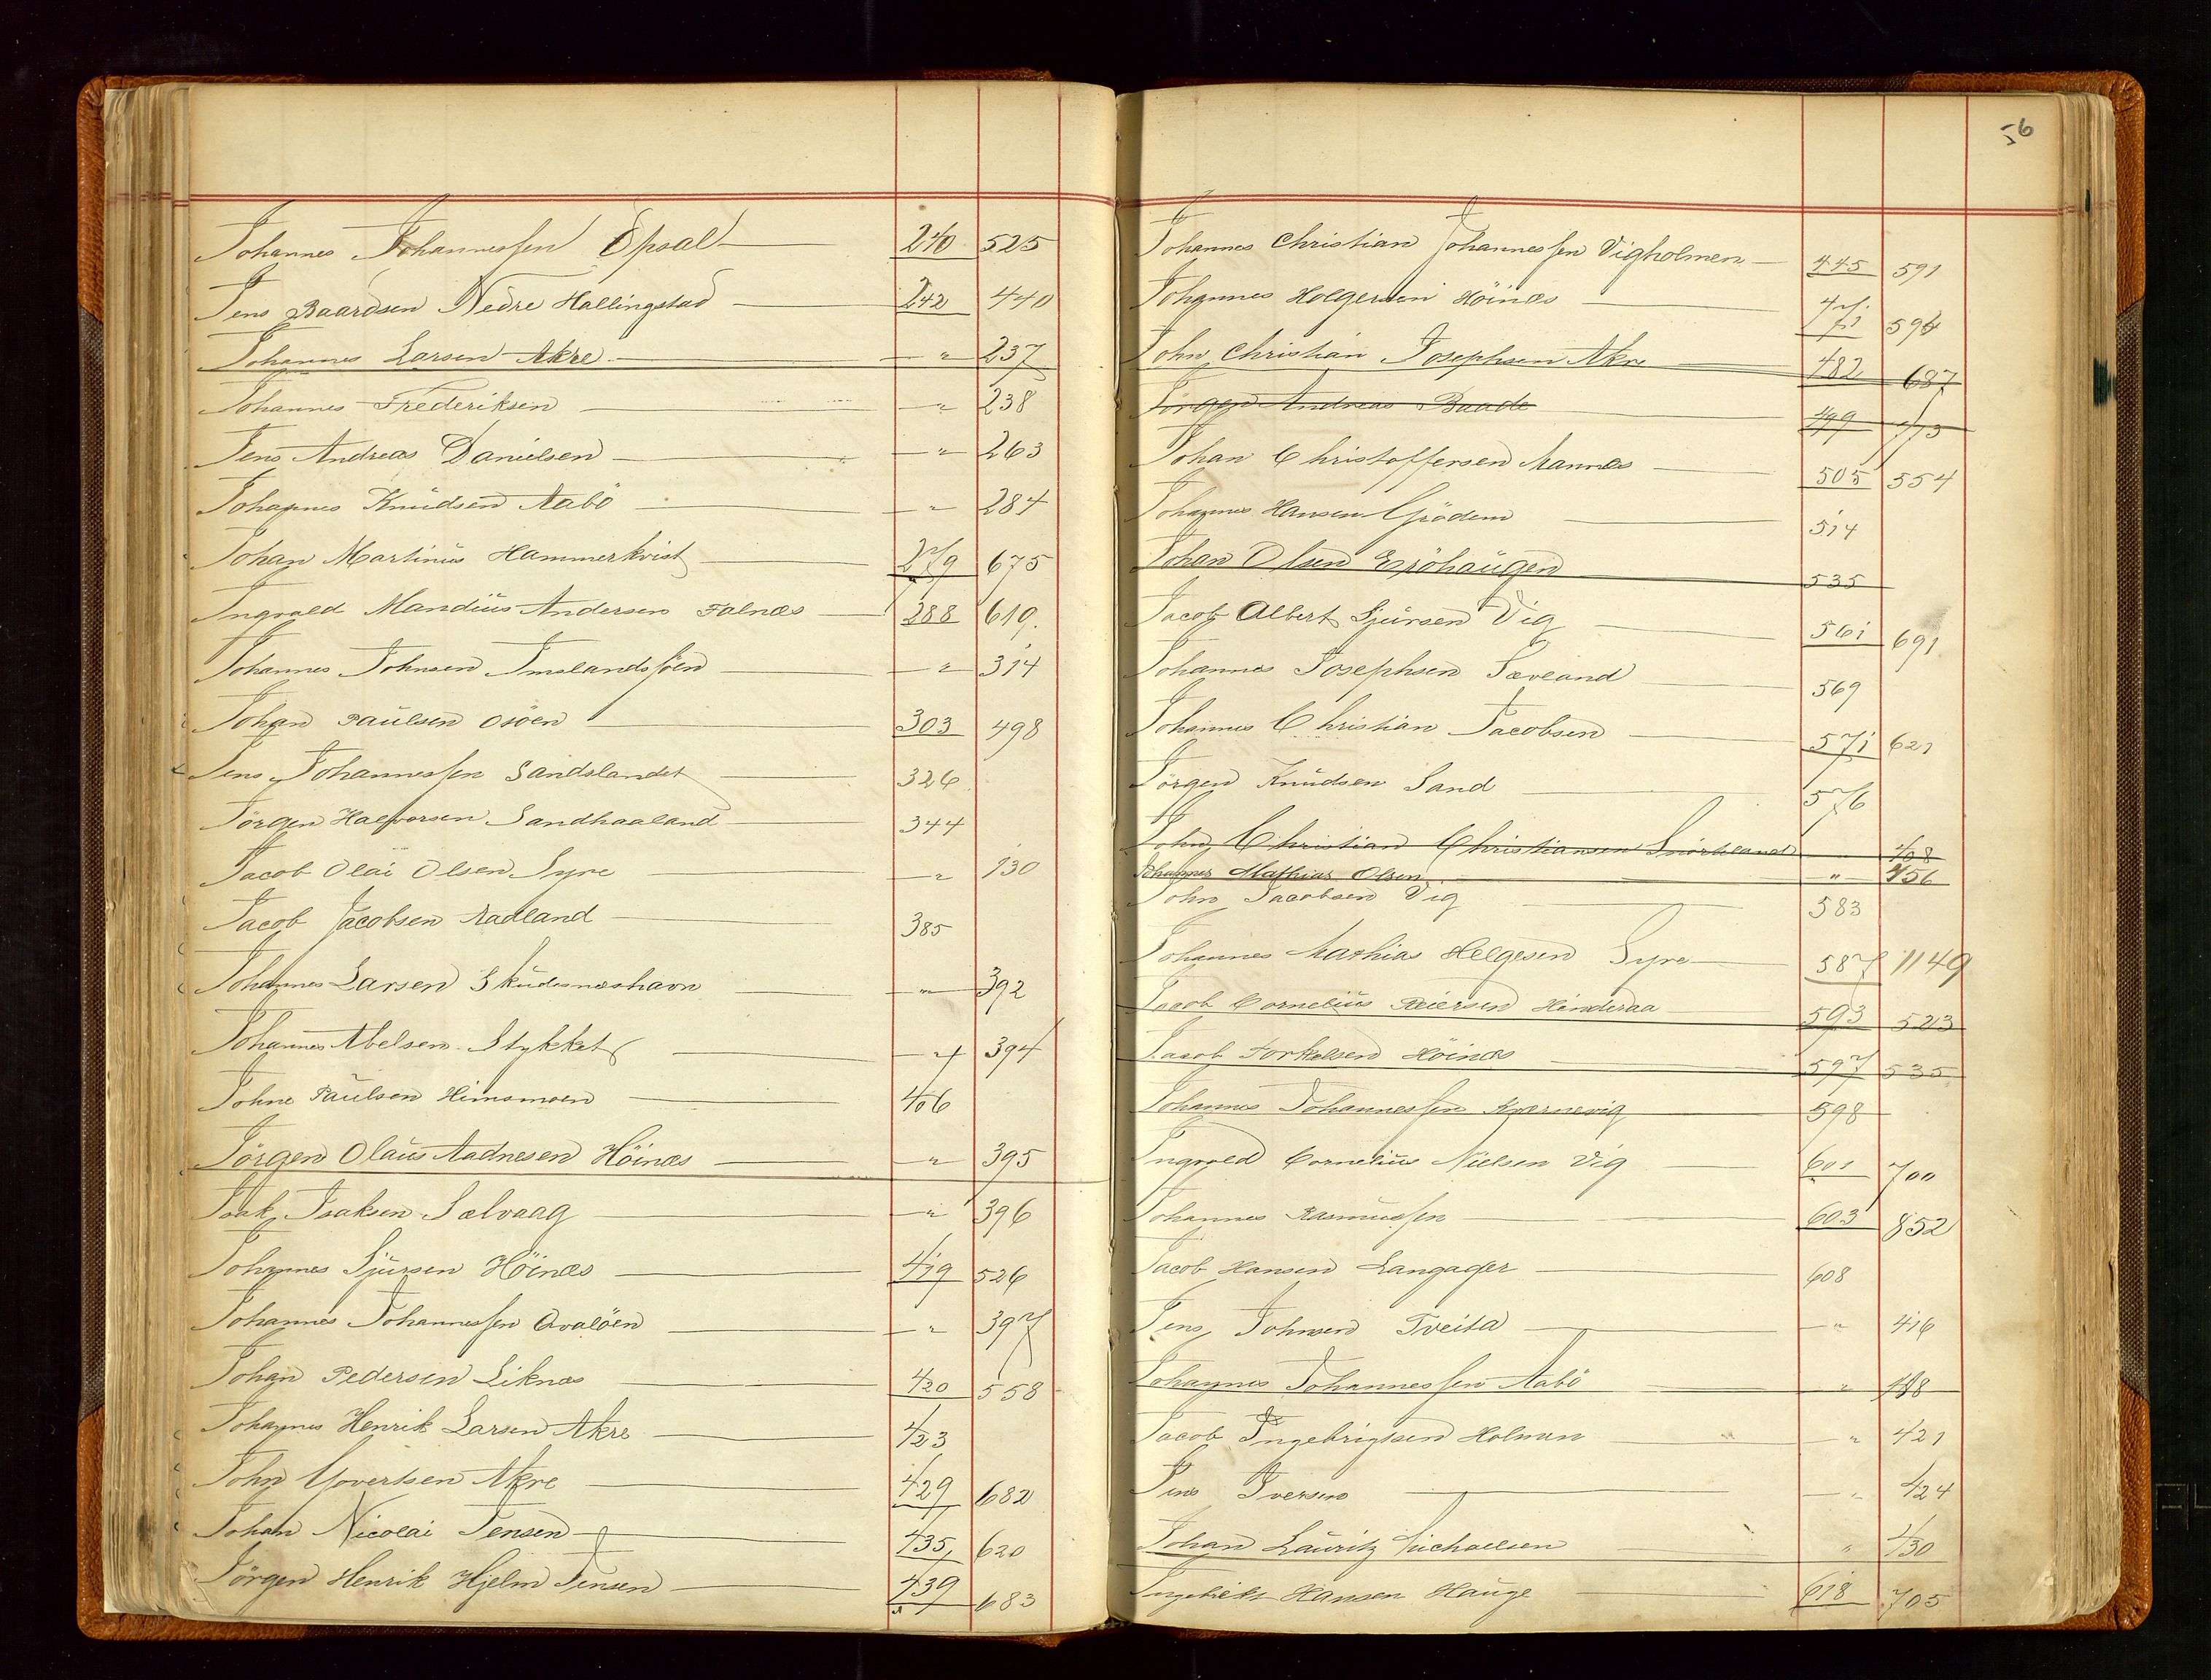 Johannes Johannessen Opsal — 240 525
Jens Baardsen Nedre Hallingstad — 242 440
Johannes Larsen Akre — " 237
Johannes Frederiksen — " 238
Jens Andreas Danielsen — " 263
Johannes Knudsen Aabö — " 284
Johan Martinus Hammerkvist — 279 675
Ingvald Mandius Andersen Falnæs — 288 619.
Johannes Johnsen Imslandsjöen — " 314
Johan Paulsen Osöen — 303 498
Jens Johannessen Sandslandet — 326
Jörgen Halvorsen Sandhaaland — 344
Jacob Olai Olsen Syre — " 130
Jacob Jacobsen Aadland — 385
Johannes Larsen Skudesnæshavn — " 392
Johannes Abelsen Stykket — " 394
Johne Paulsen Himsmoen — 406
Jörgen Olaus Aadnesen Höinæs — " 395
Isak Isaksen Sælvaag — " 396
Johannes Sjursen Höinæs — 419 526
Johannes Johannessen Qvalöen — " 397
Johan Pedersen Liknæs — 420 558
Johannes Henrik Larsen Akre — 423
John Govertsen Akre — 429 682
Johan Nicolai Jensen — 435 620
Jörgen Henrik Hjelm Jensen — 439 683
56
Johannes Christian Johannessen Vigholmen — 445 591
Johannes Holgersen Höinæs — 471 594
John Christian Josephsen Akre — 482 687
Jörgen Andreas Baade — 499 773
Johan Christoffersen Mannæs — 505 554
Johannes Hansen Grödem — 514
Johan Olsen Sjöhaugen — 535
Jacob Albert Sjursen Vig — 561 691
Johannes Josephsen Sæveland — 569
Johannes Christian Jacobsen — 571 621
Jörgen Knudsen Sand — 576
John Christian Christiansen Snörteland — " 408
Johannes Mathias Olsen — " 456
John Jacobsen Vig — 583
Johannes Mathias Helgesen Syre — 587 1149
Jacob Cornelius Reiersen Hinderaa — 593 523
Jacob Torkelsen Höinæs — 597 535
Johannes Johannessen Kvernevig — 598
Ingvald Cornelius Nielsen Vig — 601 700
Johannes Rasmussen — 603 852
Jacob Hansen Langager — 608
Jens Johnsen Tveita — " 416
Johannes Johannessen Aabö — " 418
Jacob Ingebrigtsen Holmen — " 421
Jens Iversen — " 424
Johan Lauritz Michaelsen — " 430
Ingebrikt Hansen Hauge — 618 705